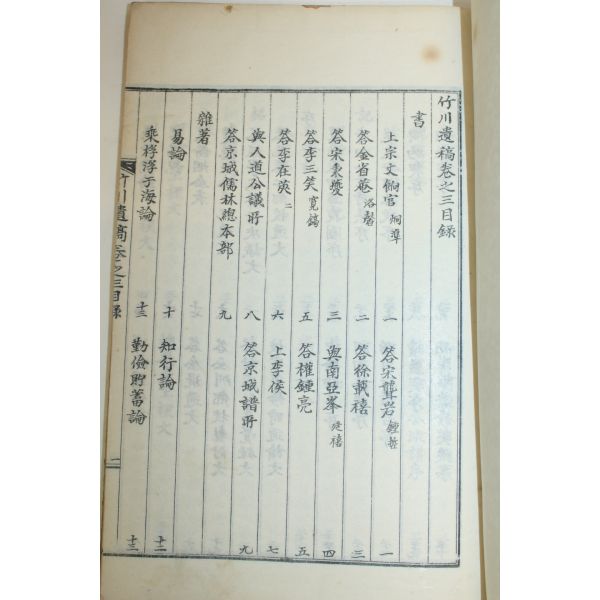 竹川遺稿卷之三目錄
書
上宗丈 炯準 一 答宋聾岩 鍾 一
答金省菴 洛馨 二 答徐載禧 三
答宋秉夔 三 與南亞峯 廷禧 四
答李三笑 寬 五 答權鍾亮 五
答李在英 二 六 上李侯 七
與人道公議所 八 答京城譜所 九
答京城儒林總本部 九
雜著
易論 十 知行論 十二
乘桴浮于海論 十三 勤儉貯蓄論 十三
竹川遺稿 卷之三目錄 一